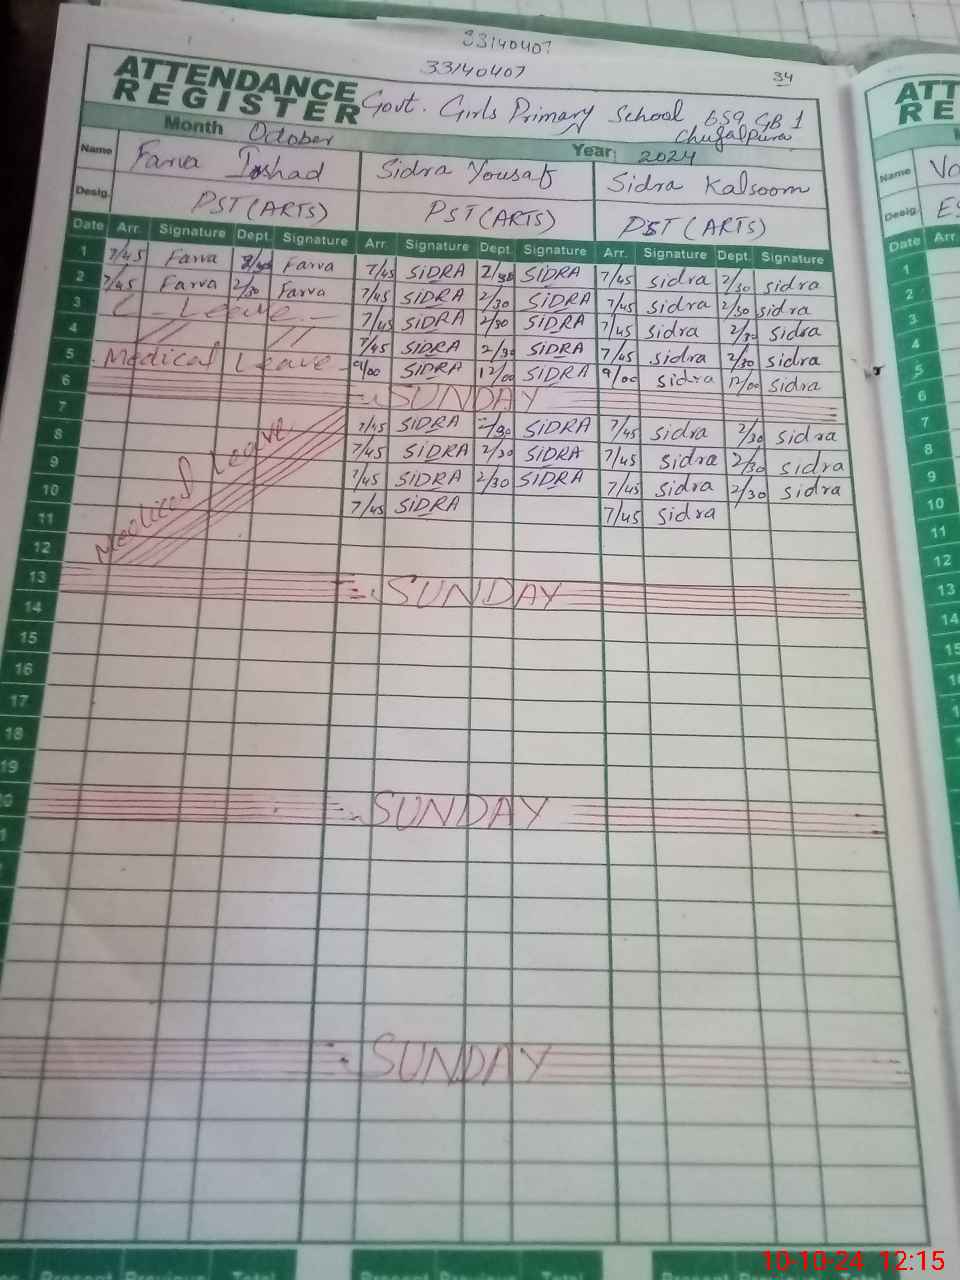 33140407
33140407
34
ATTENDANCE REGISTER
Govt. Girls Primary School 659 GB 1
Chufalpura
Month October Year: 2024
Name Farva Irshad Sidra Yousaf Sidra Kalsoom
Desig. PST (ARTS) PST (ARTS) PST (ARTS)
Date Arr. Signature Dept. Signature Arr. Signature Dept. Signature Arr. Signature Dept. Signature
1 7/45 Farva 2/30 Farva 7/45 SIDRA 2/30 SIDRA 7/45 sidra 2/30 sidra
2 7/45 Farva 2/30 Farva 7/45 SIDRA 2/30 SIDRA 7/45 sidra 2/30 sidra
3 C - Leave 7/45 SIDRA 2/30 SIDRA 7/45 sidra 2/30 sidra
4 7/45 SIDRA 2/30 SIDRA 7/45 sidra 2/30 sidra
5 Medical Leave 9/00 SIDRA 12/00 SIDRA 9/00 sidra 12/00 sidra
6 SUNDAY
7 7/45 SIDRA 2/30 SIDRA 7/45 sidra 2/30 sidra
8 Medical Leave 7/45 SIDRA 2/30 SIDRA 7/45 sidra 2/30 sidra
9 7/45 SIDRA 2/30 SIDRA 7/45 sidra 2/30 sidra
10 7/45 SIDRA 7/45 sidra
11
12
13 SUNDAY
14
15
16
17
18
19
20 SUNDAY
SUNDAY
ATT
RE
Name
Desig.
Date Arr
1
2
3
4
5
6
7
8
9
10
11
12
13
14
15
Total
10-10-24 12:15